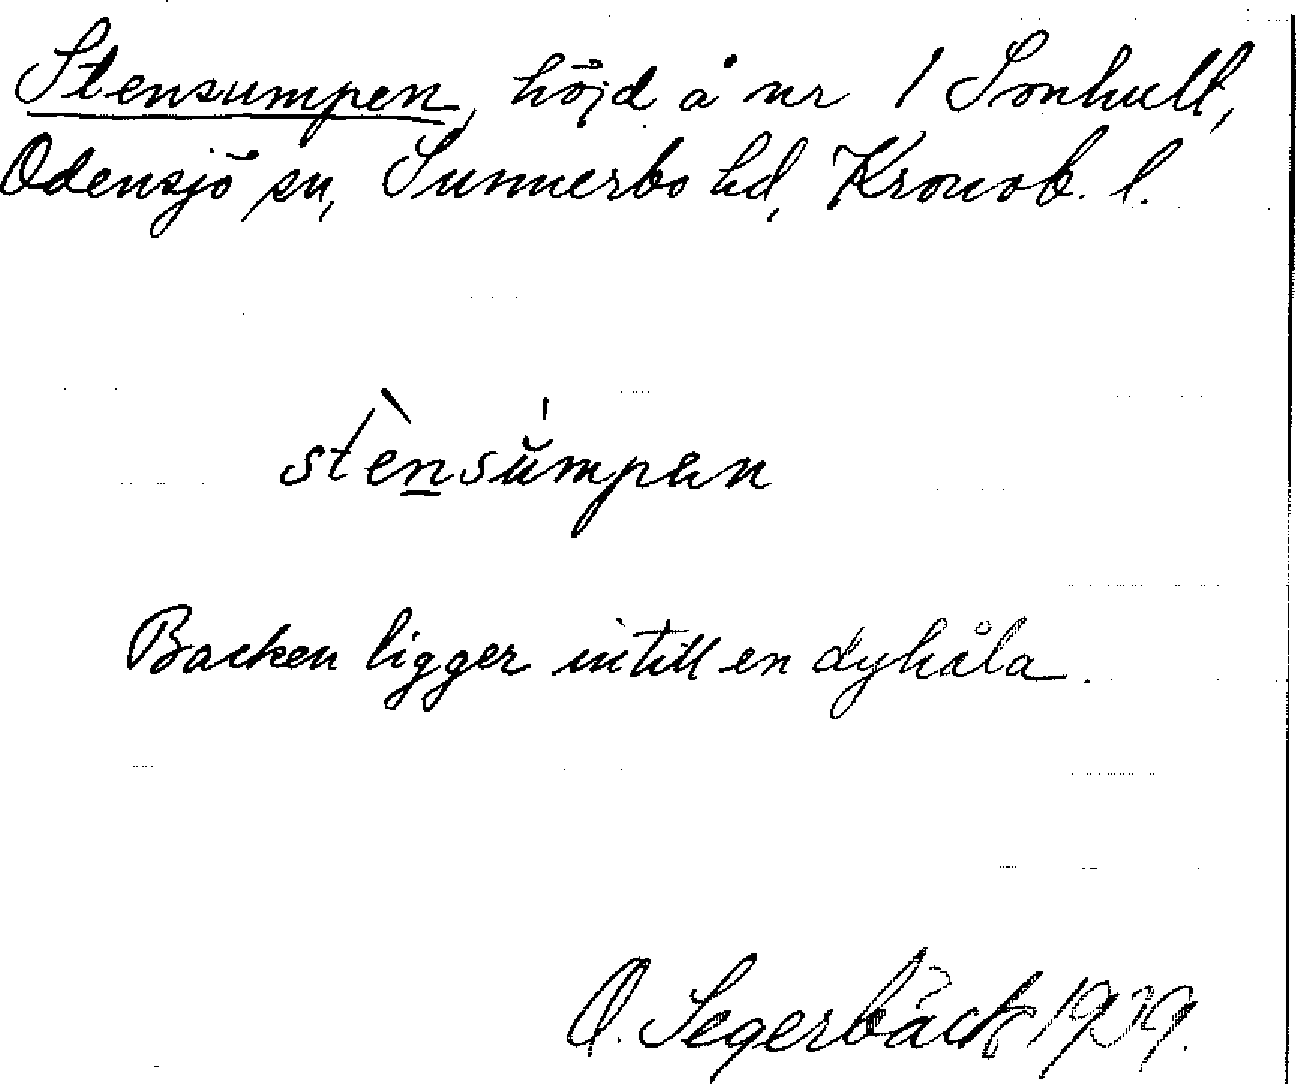 Stensumpen, höjd å nr 1 Sonhult,
Odensjö sn, Sunnerbo hd, Kronob. l.
stènsu̇́mpen
Backen ligger intill en dyhåla.
O. Segerbäck 1939.